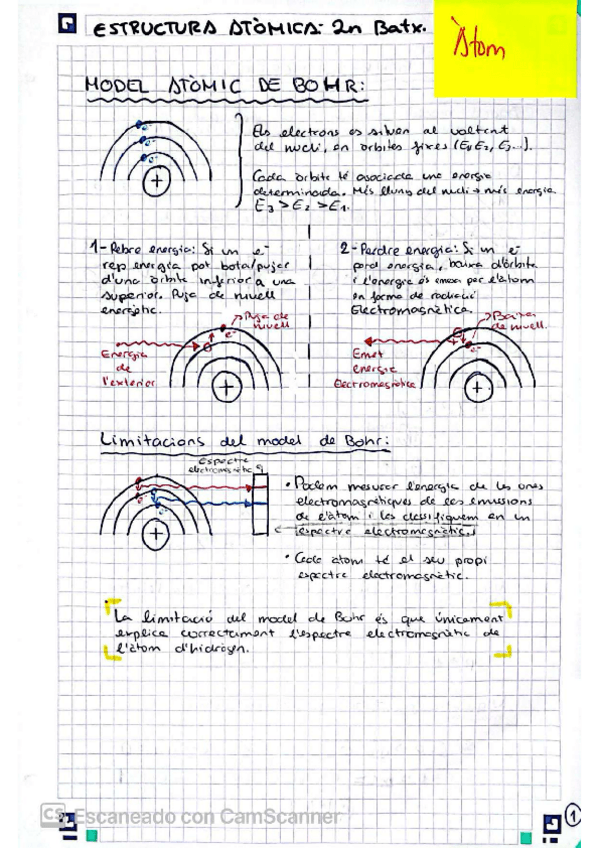 ESTRUCTURA ATÒMICA: 2n Batx.
Àtom
MODEL ATÒMIC DE BOHR:
Els electrons es situen al voltant
del nucli, en orbites fixes (E1, E2, E3...).
Cada orbita té associada una energia
determinada. Més lluny del nucli → més energia
E3 > E2 > E1.
e-
e-
e-
+
1- Rebre energia: Si un e-
rep energia pot botar/pujar
d'una òrbita inferior a una
superior. Puja de nivell
energètic.
Puja de
nivell
e-
Energia
de
l'exterior
+
2- Perdre energia: Si un e-
perd energia, baixa d'òrbita
i l'energia és emesa per l'àtom
en forma de radiació
Electromagnètica.
Baixa
de nivell.
e-
Emet
energia
Electromagnètica
+
Limitacions del model de Bohr:
Espectre
electromagnètic
+
• Podem mesurar l'energia de les ones
electromagnètiques de les emissions
de l'àtom i les classifiquem en un
espectre electromagnètic.
• Cada atom té el seu propi
espectre electromagnètic.
La limitació del model de Bohr és que únicament
explica correctament l'espectre electromagnètic de
l'àtom d'hidrògen.
CS Escaneado con CamScanner
1